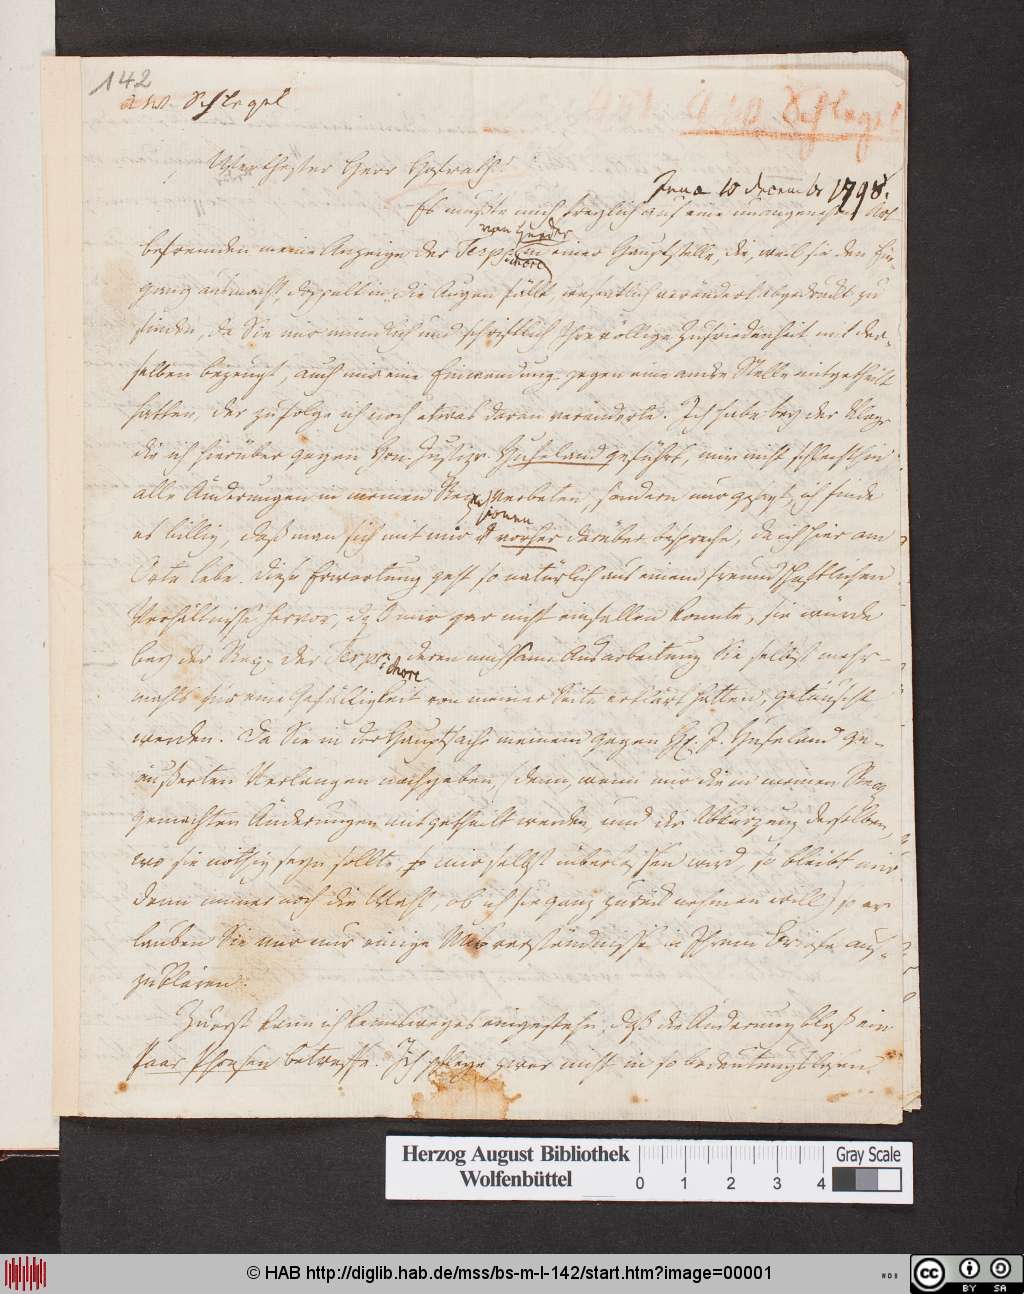 142
a w. Schlegel
A W Schlegel
Werthester Herr Hofrath!
Jena 10 december 1798.
Es mußte mich freylich auf eine unangenehme Art
von Herder
befremden meine Anzeige der Terpsichore in einer Hauptstelle, die, weil sie den Ein-
gang ausmacht, doppelt in die Augen fällt, wesentlich verändert abgedruckt zu
finden, da Sie mir mündlich und schriftlich Ihre völlige Zufriedenheit mit der-
selben bezeugt, auch mir eine Einwendung gegen eine andre Stelle mitgetheilt
hatten, der zufolge ich noch etwas daran veränderte. Ich habe bey der Klage
die ich hierüber gegen Hrn. Justizr. Hufeland geführt, mir nicht schlechthin
alle Änderungen in meinen Recensionen verbeten, sondern nur gesagt, ich finde
es billig, daß man sich mit mir vorher darüber bespreche, da ich hier am
Orte lebe. Diese Erwartung geht so natürlich aus einem freundschaftlichen
Verhältnisse hervor, daß mir gar nicht einfallen konnte, sie würde
bey der Rec. der Terpsichore, deren mühsame Ausarbeitung Sie selbst mehr-
mahls für eine Gefälligkeit von meiner Seite erklärt hatten, getäuscht
werden. Da Sie in der Hauptsache meinem gegen H. J. Hufeland ge-
äußerten Verlangen nachgeben, (denn, wenn mir die in meinen Rec.
gemachten Änderungen mitgetheilt werden, und die Abkürzung derselben,
wo sie nöthig seyn sollte, mir selbst überlassen wird, so bleibt mir
denn immer noch die Wahl, ob ich sie ganz zurück nehmen will) so er-
lauben Sie mir nur einige Misverständnisse in Ihrem Briefe auf-
zuklären.
Zuerst kann ich keineswegs eingestehn, daß die Änderung bloß ein
Paar Phrasen betreffe. Ich pflege zwar nicht in so bedeutungslosen
Herzog August Bibliothek
Wolfenbüttel
0 1 2 3 4
Gray Scale
© HAB http://diglib.hab.de/mss/bs-m-l-142/start.htm?image=00001
WDB
cc BY SA